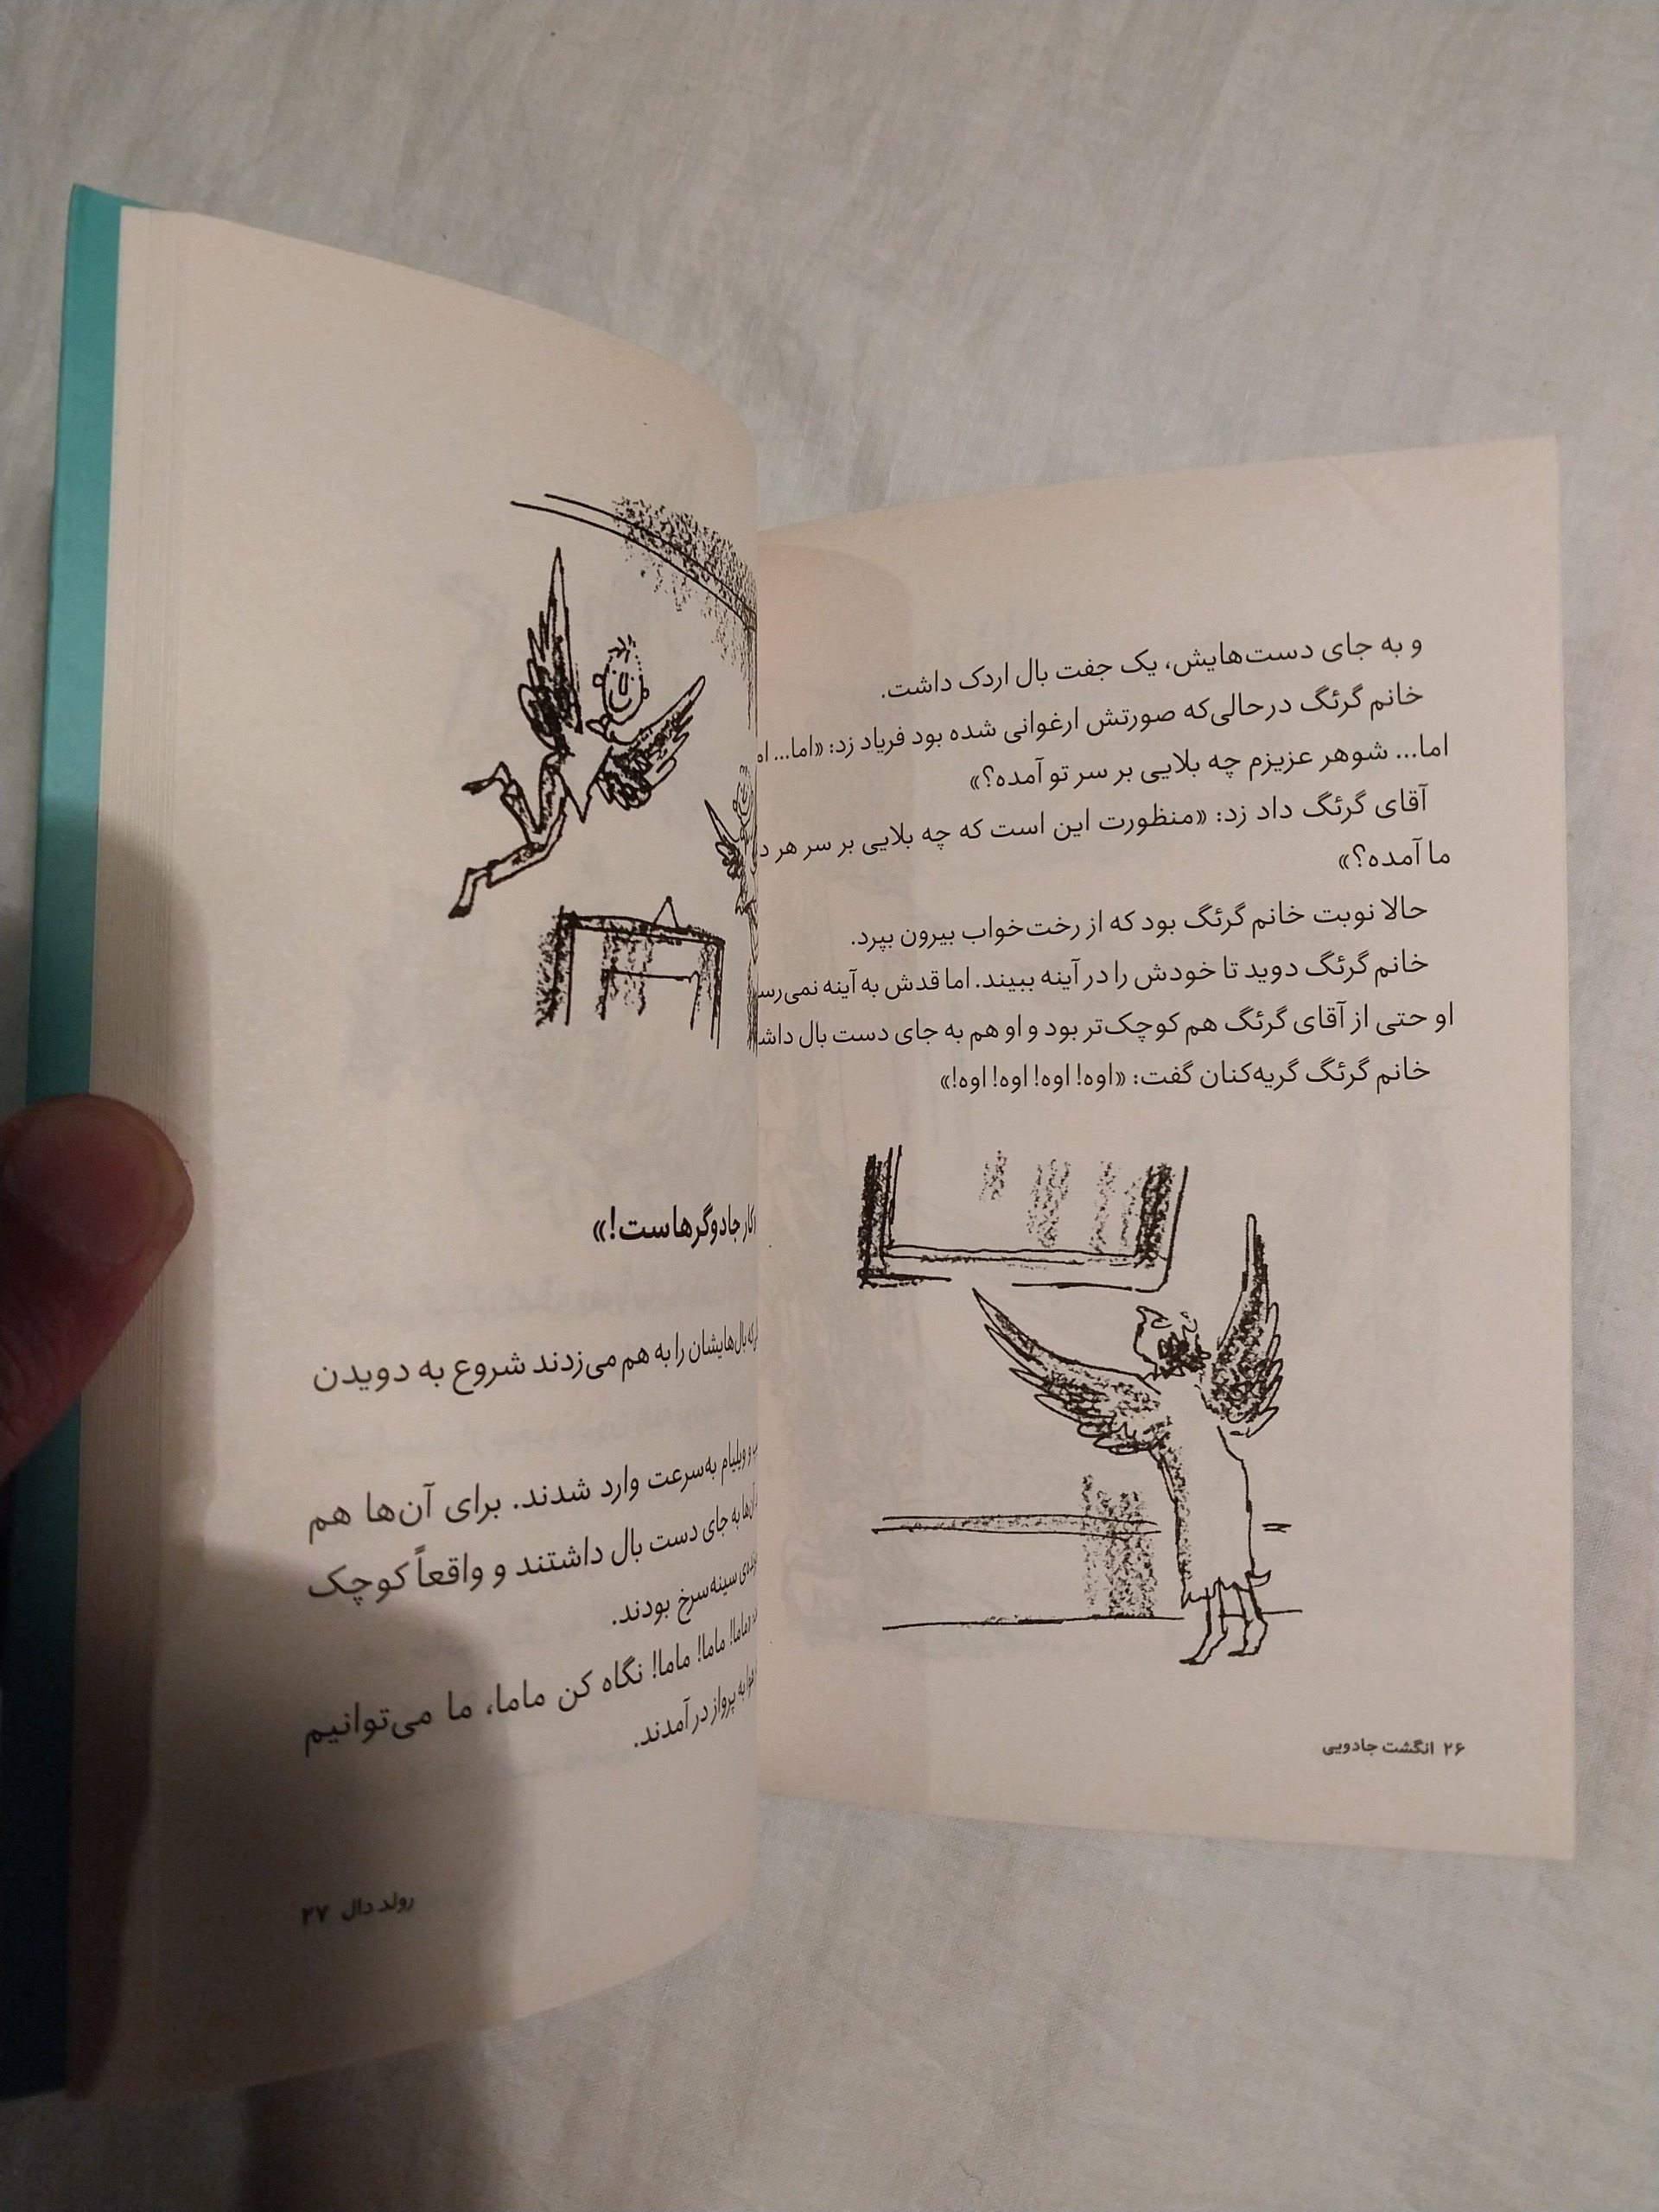 و به جای دست‌هایش، یک جفت بال اردک داشت.
خانم گرئگ درحالی‌که صورتش ارغوانی شده بود فریاد زد: «اما...
اما... شوهر عزیزم چه بلایی بر سر تو آمده؟»
آقای گرئگ داد زد: «منظورت این است که چه بلایی بر سر هر
ما آمده؟»
حالا نوبت خانم گرئگ بود که از رخت‌خواب بیرون بپرد.
خانم گرئگ دوید تا خودش را در آینه ببیند. اما قدش به آینه
او حتی از آقای گرئگ هم کوچک‌تر بود و او هم به جای دست بال
خانم گرئگ گریه‌کنان گفت: «اوه! اوه! اوه! اوه!»
۲۶ انگشت جادویی
کار جادوگرهاست!»
بال‌هایشان را به هم می‌زدند شروع به دویدن
و ویلیام به‌سرعت وارد شدند. برای آن‌ها هم
آن‌ها به جای دست بال داشتند و واقعاً کوچک
سینه‌سرخ بودند.
ماما! ماما! نگاه کن ماما، ما می‌توانیم
به پرواز در آمدند.
رولد دال ۲۷